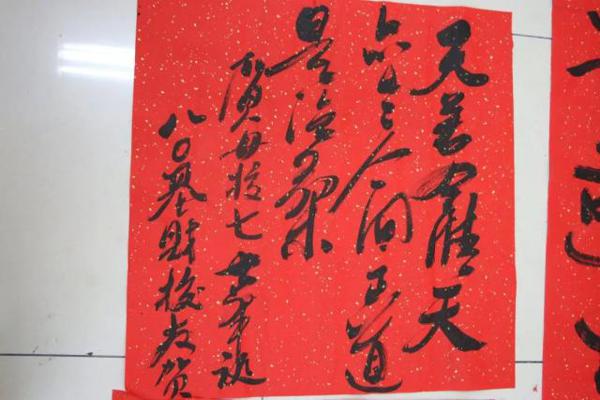 天若有情天
亦老人间正道
是沧桑
贺母校七十华诞
八〇基财校友贺